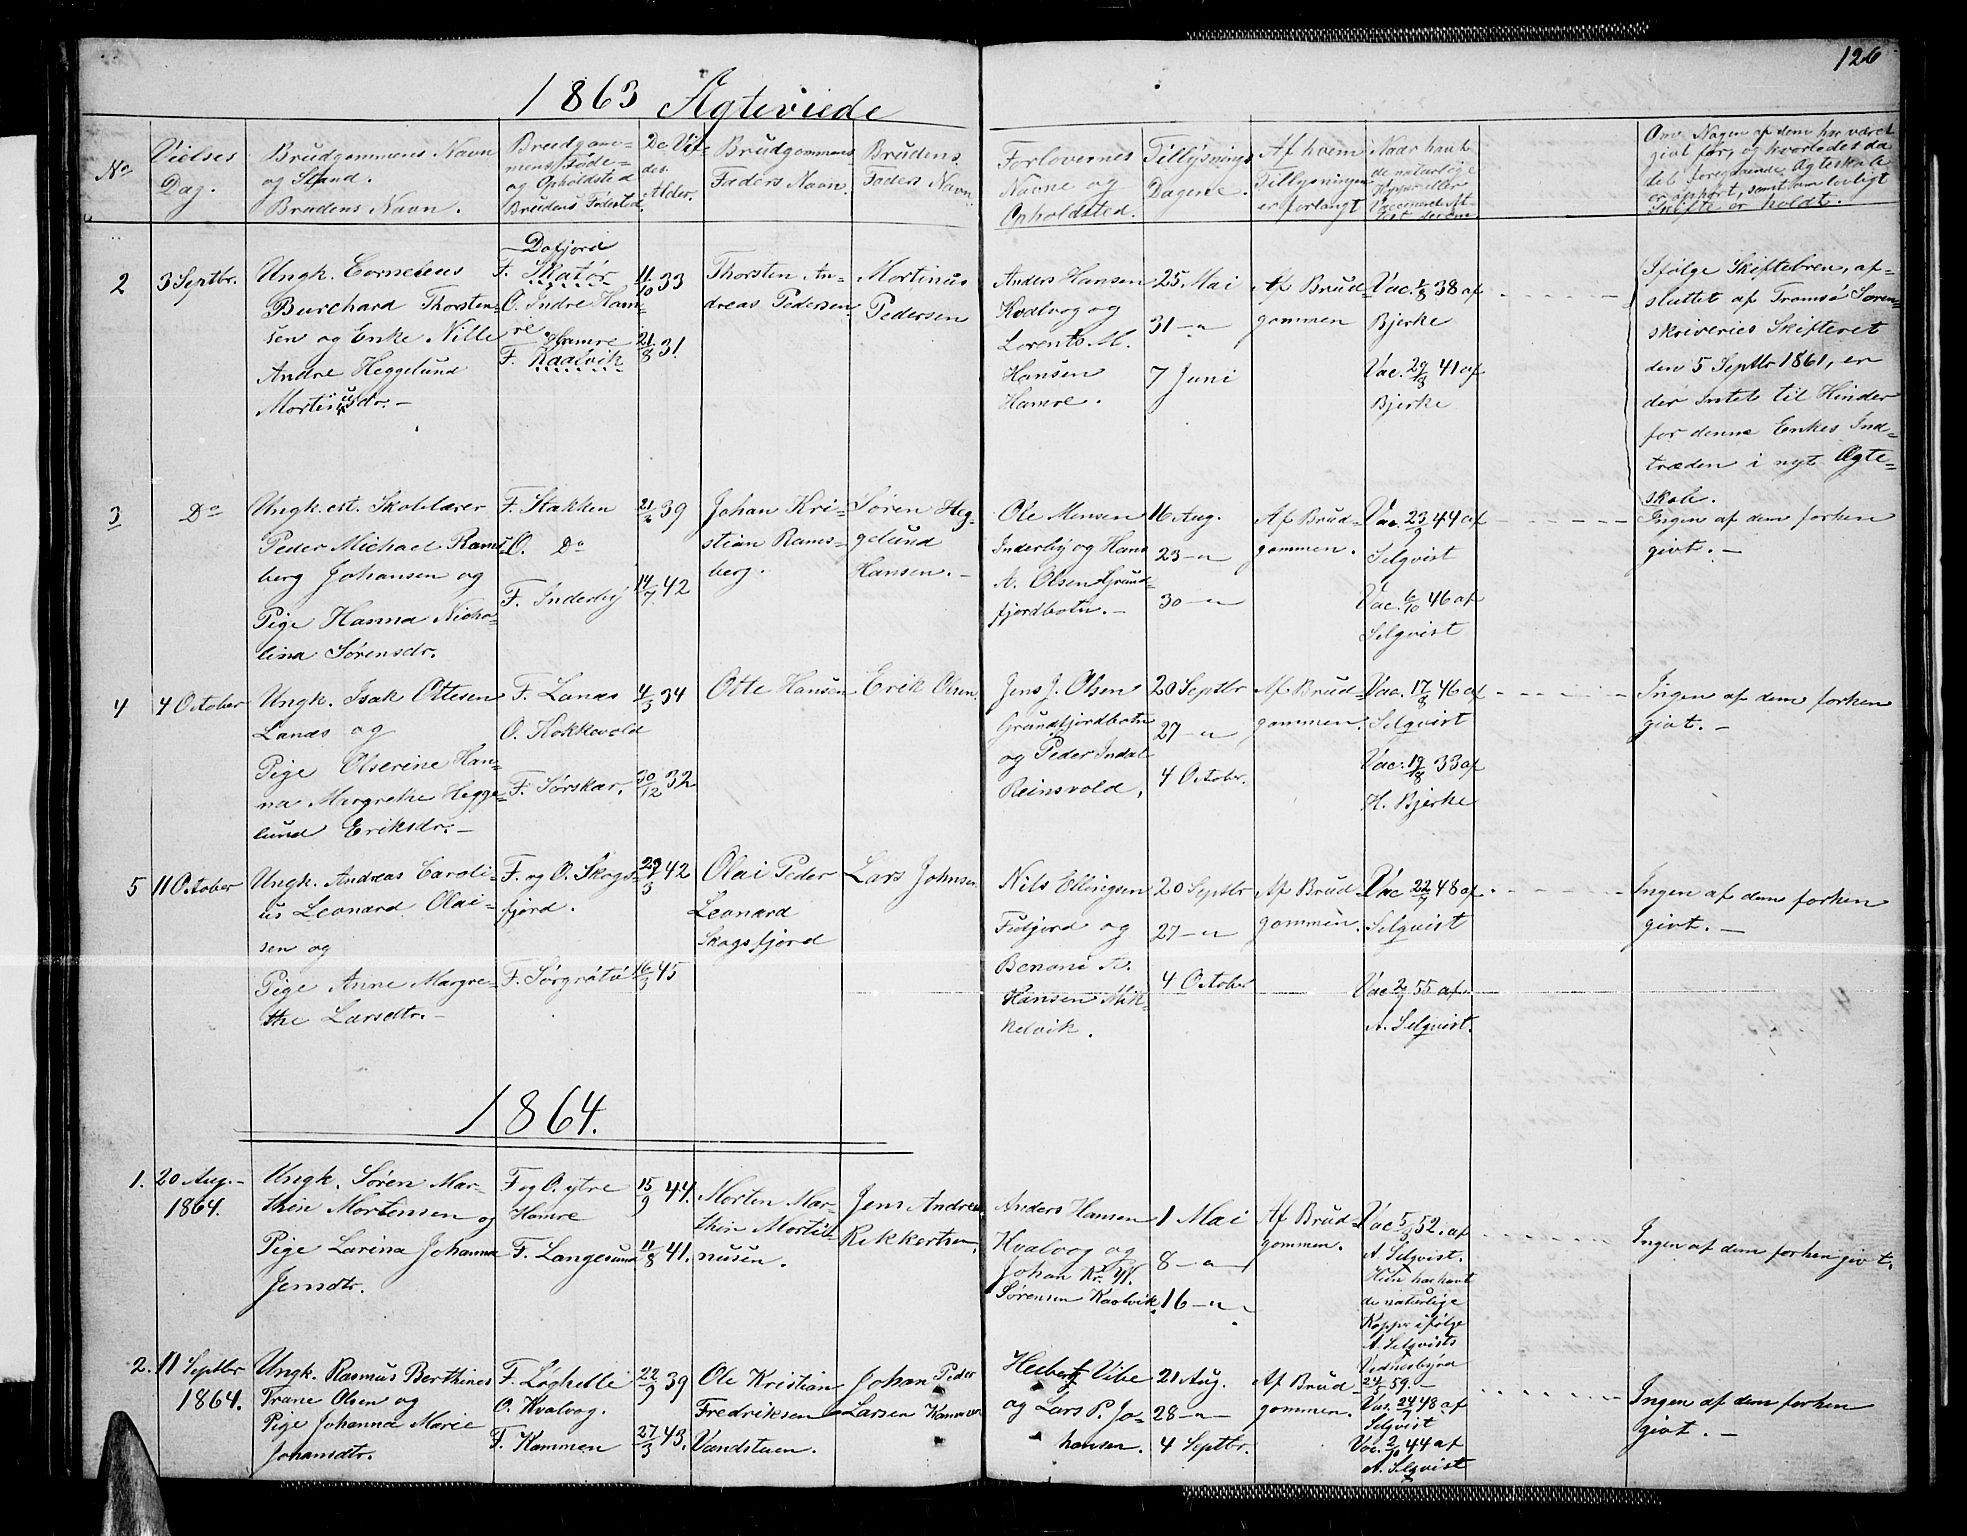 126
1863 Ægteviede
No
Vielses
Dag.
Brudgommens Navn
og Stand.
Brudens Navn.
Brudgom-
mens Føde-
og Opholdsted
Brudens Fødested.
De Vi-
des
Alder.
Brudgommens
Faders Navn.
Brudens
Faders Navn
Forlovernes
Navne og
Opholdsted.
Tillysnings
Dagene.
Af hvem
Tillysningen
er forlangt
Naar havt
de naturlige
Kopper eller
Vaccineret At-
test derom
Om Nogen af dem har været
givt før, og hvorledes da
det foregaaende Ægteskab
er ophørt, samt om lovligt
Skifte er holdt.
2
3 Septbr.
Ungk. Cornelius
Burchard Thorsten-
sen og Enke Nille
Andre Heggelund
Mortinusdr. -
Dafjord
F. Skatør
O. Indre Ham-
re
Hamre
F. Kaalvik
11/10 33
21/8 31
Thorsten An-
dreas Pedersen
Mortinus
Pedersen
Anders Hansen
Kvalvog og
Lorents M.
Hansen
Hamre.
25 Mai
31 - "
7 Juni
Af Brud-
gommen
Vac. 1/8 38 af
Bjerke
Vac. 29/8 41 af
Bjerke
Ifølge Skiftebrev, af-
sluttet af Tromsø Soren-
skriveries Skifteret
den 5 Septbr 1861, er
der Intet til Hinder
for denne Enkes Ind-
træden i nyt Ægte-
skab.
3
Do
Ungk. est. Skolelærer
Peder Michael Rams-
berg Johansen og
Pige Hanna Nicho-
lina Sørensdr.
F. Stakken
O. Do
F. Inderby
21/6 39
14/7 42
Johan Kri-
stian Rams-
berg.
Søren Heg-
gelund
Hansen. -
Ole Monsen
Inderby og Hans
A. Olsen Grund-
fjordbotn. -
16 Aug.
23 - "
30 - "
Af Brud-
gommen.
Vac. 23/9 44 af
Selqvist
Vac. 6/10 46 af
Selqvist
Ingen af dem forhen
givt. -
4
4 October
Ungk. Isak Ottesen
Lanæs og
Pige Olserine Han-
na Margrethe Hegge-
lund Eriksdr. -
F. Lanæs
O. Kokkevold
F. Sørskar.
4/3 34
30/12 32
Otte Hansen
Erik Olsen
Jens J. Olsen
Grundfjordbotn
og Peder Indal
Reinsvold.
20 Septbr
27 - "
4 October.
Af Brud-
gommen.
Vac. 17/8 46 af
Selqvist
Vac. 19/8 33 af
H. Bjerke
Ingen af dem forhen
givt. -
5
11 October
Ungk. Andreas Caroli-
us Leonard Olai-
sen og
Pige Anne Margre-
the Larsdtr. -
F. og O. Skogs-
fjord.
F. Sørgråtø
29/3 42
16/3 45
Olai Peder
Leonard
Skogsfjord
Lars Johnsen
Nils Ellingsen
Fudjord og
Benoni A.
Hansen Mik-
kelvik.
20 Septbr
27 - "
4 October
Af Brud-
gommen.
Vac 22/7 48 af
Selqvist
Vac 2/7 55 af
A. Selqvist.
Ingen af dem forhen
givt. -
1864.
1.
20 Aug. -
1864.
Ungk. Søren Mar-
thin Mortensen og
Pige Larina Johanna
Jensdtr.
F og O. ytre
Hamre
F. Langesund
15/9 44.
11/8 41.
Morten Mar-
thin Morti-
nusen.
Jens Andreas
Rikkertsen.
Anders Hansen
Kvalvog og
Johan Kr. M.
Sørensen Kaalvik.
1 Mai
8 - "
16 - "
Af Brud-
gommen.
Vac 5/8 52. af
A. Selqvist.
Hun har havt
de naturlige
Kopper ifølge
A. Selqvists
Vidnesbyrd
24/5 59. -
Ingen af dem forhen givt.
2.
11 Septbr
1864.
Ungk. Rasmus Berthines
Trane Olsen og
Pige Johanna Marie
Johansdtr.
F. Løghelle
O. Kvalvog.
F. Kammen
22/9 39
27/3 43.
Ole Kristian
Fredriksen
Vandstuen.
Johan Peder
Larsen Kammen
Heiberg Vibe
og Lars P. Jo-
hansen.
21 Aug.
28 - "
4 Septbr.
Af Brud-
gommen.
Vac. 24/7 48 af
Selqvist
Vac. 2/10 44 af
A. Selqvist
Ingen af dem forhen
givt. -